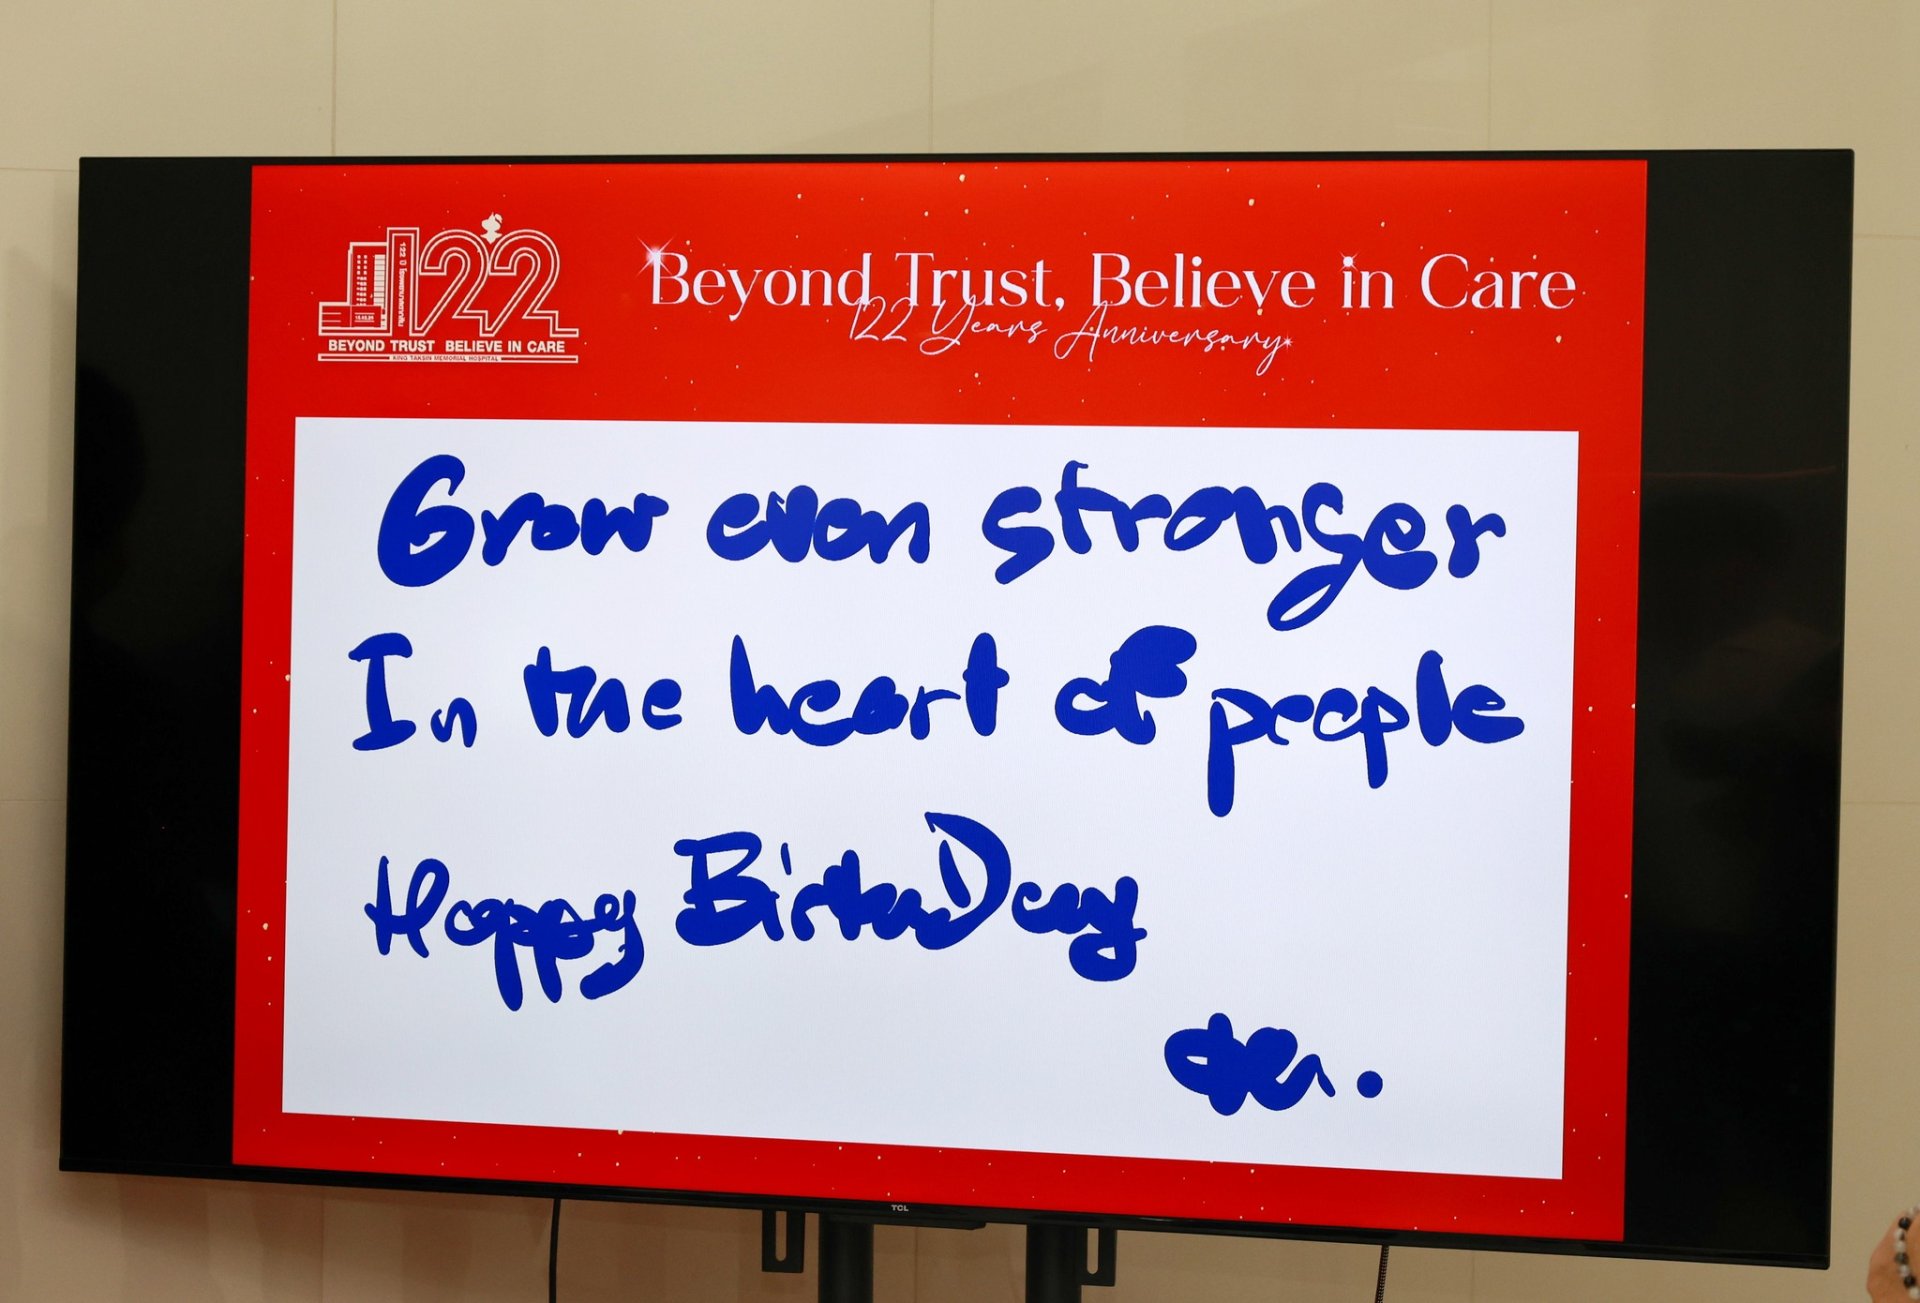 122
122 ปี โรงพยาบาลตากสิน
BEYOND TRUST BELIEVE IN CARE
KING TAKSIN MEMORIAL HOSPITAL
Beyond Trust, Believe in Care
122 Years Anniversary
Grow even stronger
In the heart of people
Happy BirthDay
TCL